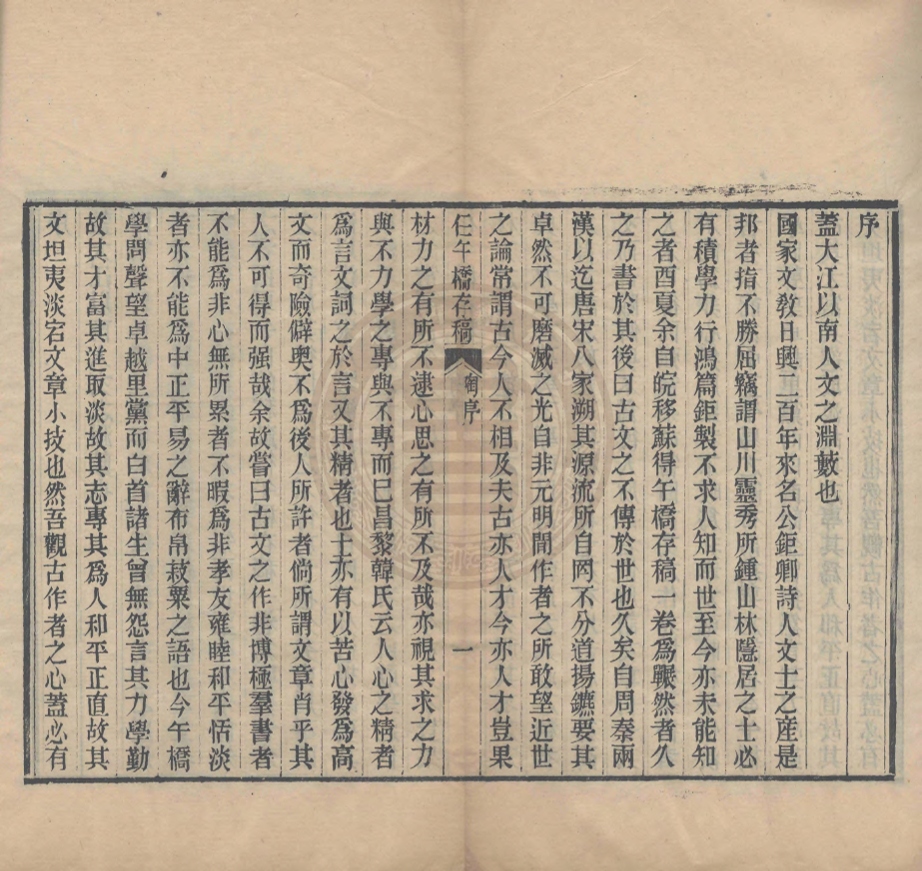 序
蓋大江以南人文之淵藪也
國家文敎日興二百年來名公鉅卿詩人文士之産是
邦者指不勝屈竊謂山川靈秀所鍾山林隱居之士必
有積學力行鴻篇鉅製不求人知而世至今亦未能知
之者酉夏余自皖移蘇得午橋存稿一卷爲囅然者久
之乃書於其後曰古文之不傳於世也久矣自周秦兩
漢以迄唐宋八家溯其源流所自罔不分道揚鑣要其
卓然不可磨滅之光自非元明間作者之所敢望近世
之論常謂古今人不相及夫古亦人才今亦人才豈果
午橋存稿 序 一
材力之有所不逮心思之有所不及哉亦視其求之力
與不力學之專與不專而已昌黎韓氏云人心之精者
爲言文詞之於言又其精者也士亦有以苦心發爲高
文而奇險僻奧不爲後人所許者倘所謂文章肖乎其
人不可得而强哉余故嘗曰古文之作非博極羣書者
不能爲非心無所累者不暇爲非孝友雍睦和平恬淡
者亦不能爲中正平易之辭布帛菽粟之語也今午橋
學問聲望卓越里黨而白首諸生曾無怨言其力學勤
故其才富其進取淡故其志專其爲人和平正直故其
文坦夷淡宕文章小技也然吾觀古作者之心蓋必有